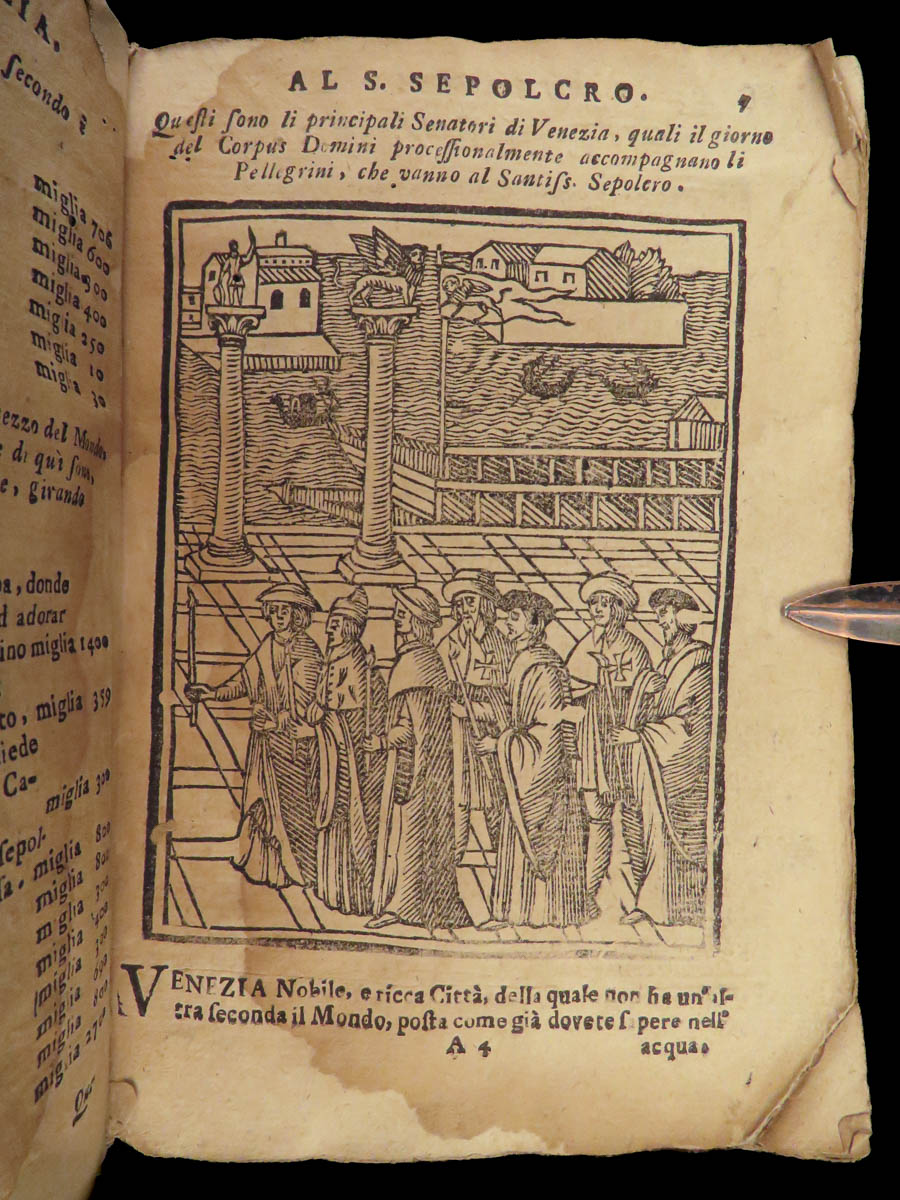 IA.
secondo è
miglia 706
miglia 600
miglia 300
miglia 400
miglia 250
miglia 10
miglia 30
mezzo del Mondo,
e di quì sono,
e, girando
donde
d adorar
ino miglia 1400
to, miglia 359
siede
Ca-
miglia 300
sepol-
miglia 800
miglia 800
miglia 300
miglia 400
miglia 300
miglia 690
miglia 800
miglia 270
AL S. SEPOLCRO. 7
Questi sono li principali Senatori di Venezia, quali il giorno
del Corpus Domini processionalmente accompagnano li
Pellegrini, che vanno al Santiss. Sepolcro.
VENEZIA Nobile, e ricca Città, della quale non ha un'al-
tra seconda il Mondo, posta come già dovete sapere nell'
A 4 acqua.